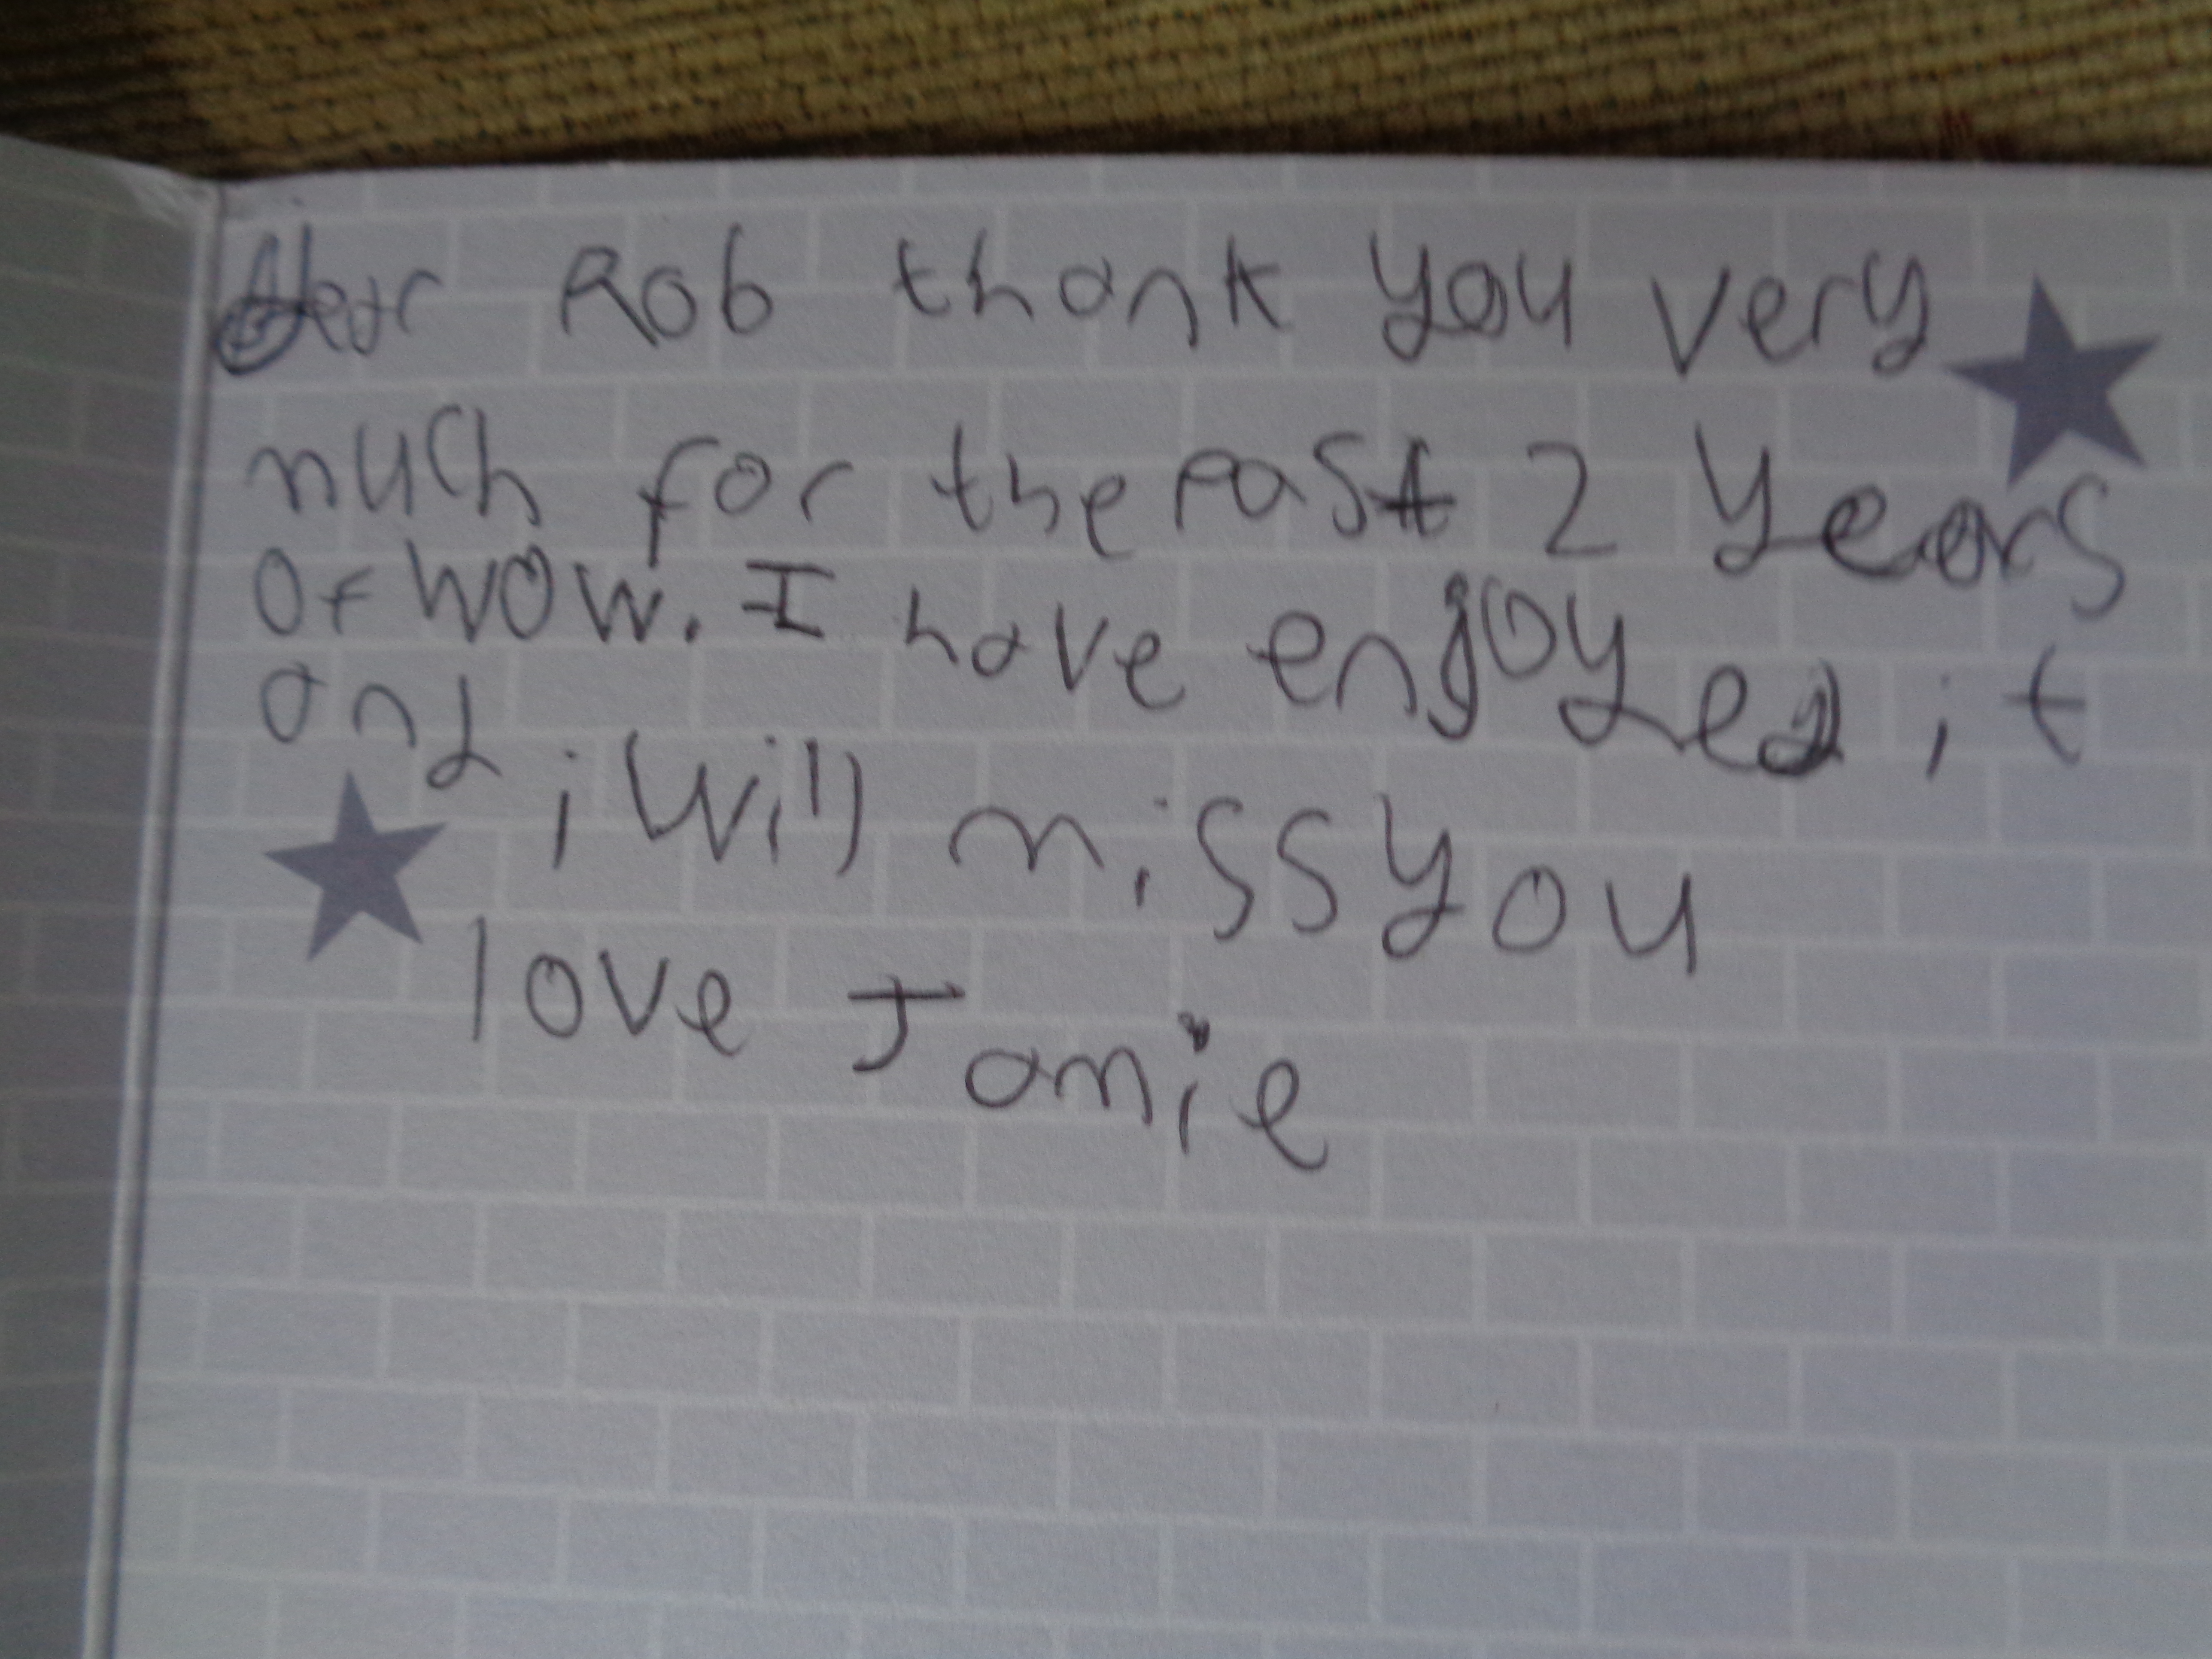 Dear Rob thank you very
much for the past 2 years
of WOW. I have enjoyed it
and i will miss you
love Jamie